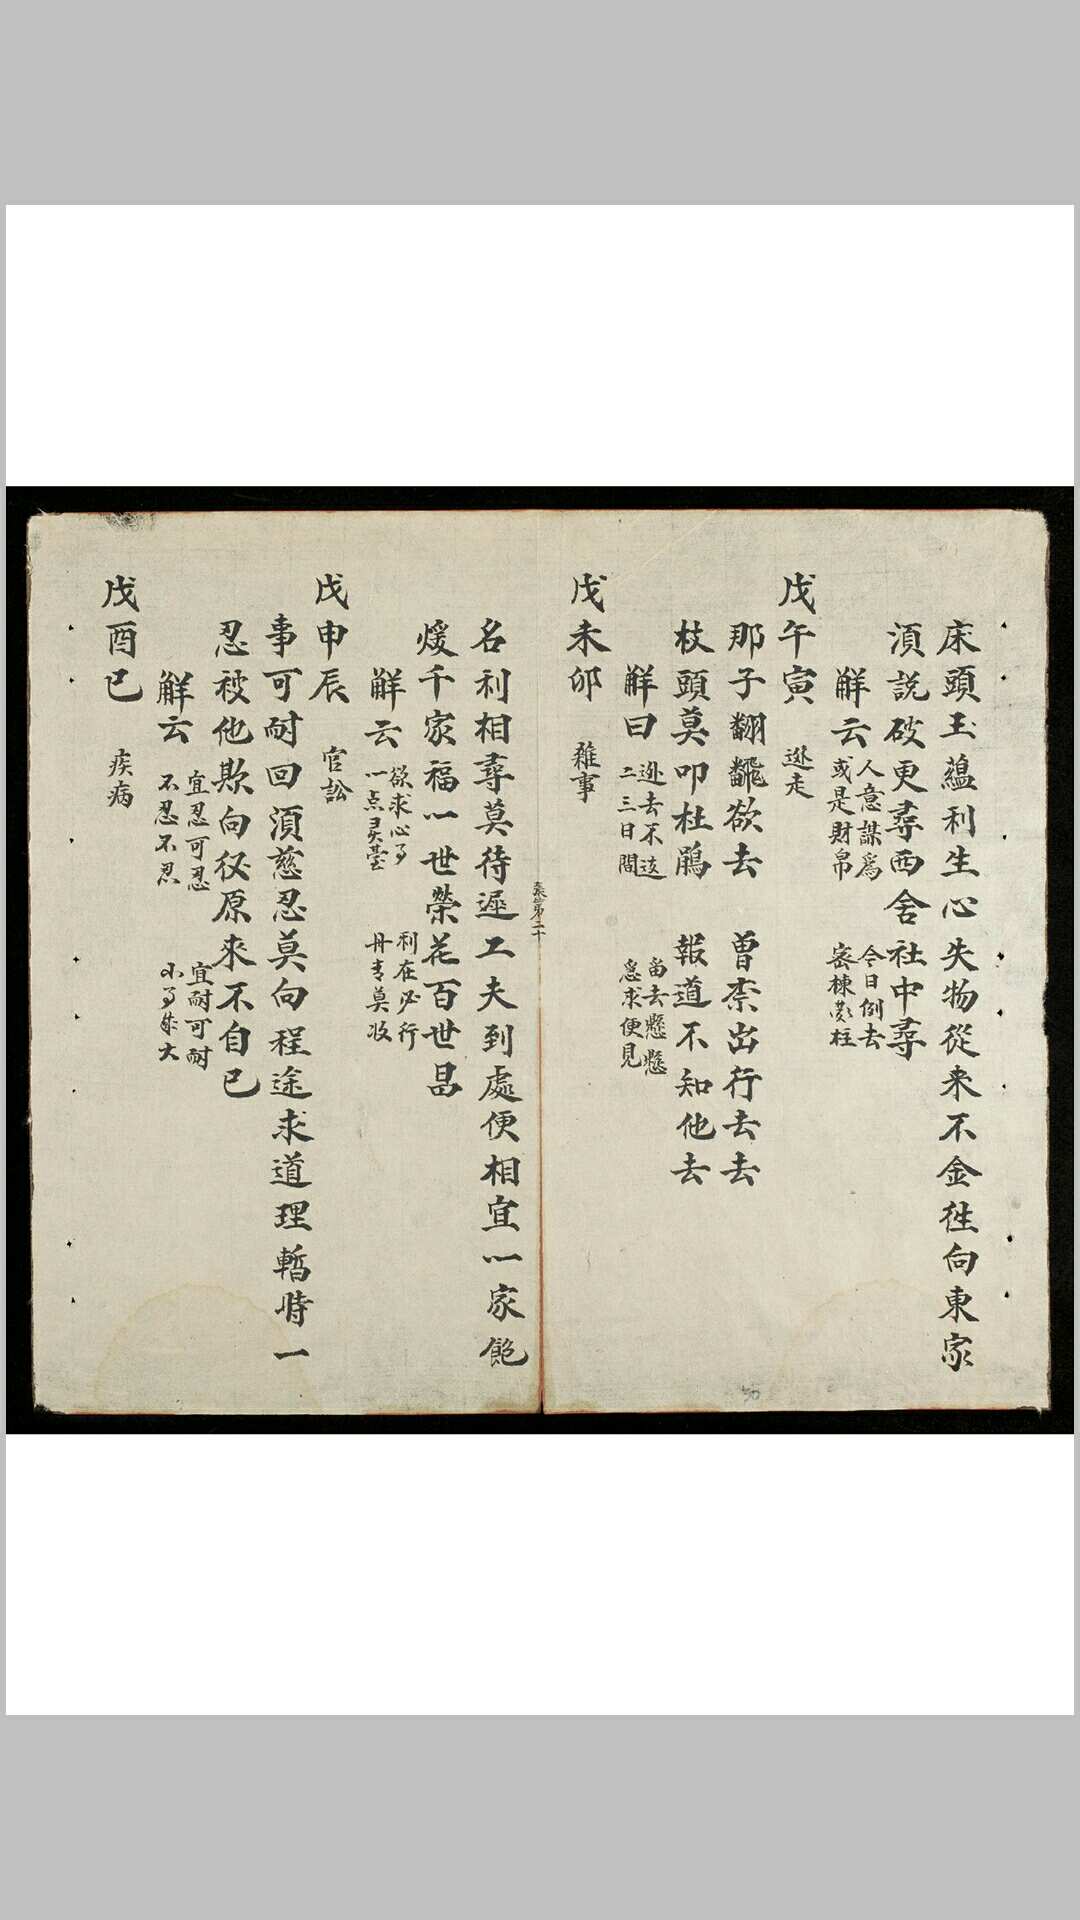 床頭玉蘊利生心失物從来不金徃向東家
湏説破更尋西舍社中尋
觧云
人意謀爲
或是財帛
今日例去
宻棟𣁽柱
戊午寅
逃走
那子翻飜欲去
曽柰出行去去
杖頭莫叩杜鵑
報道不知他去
觧曰
逃去不逺
二三日間
畄去懸懸
急求便見
戊未卯
雜事
名利相尋莫待遲工夫到處便相宜一家飽
煖千家福一世榮花百世昌
觧云
欲求心
一点灵臺
利在必行
丹青莫收
戊申辰
官訟
事可耐回湏慈忍莫向程途求道理暫時一
忍被他欺向後原來不自已
觧云
宜忍可忍
不忍不忍
宜耐可耐
小成大
戊酉巳
疾病